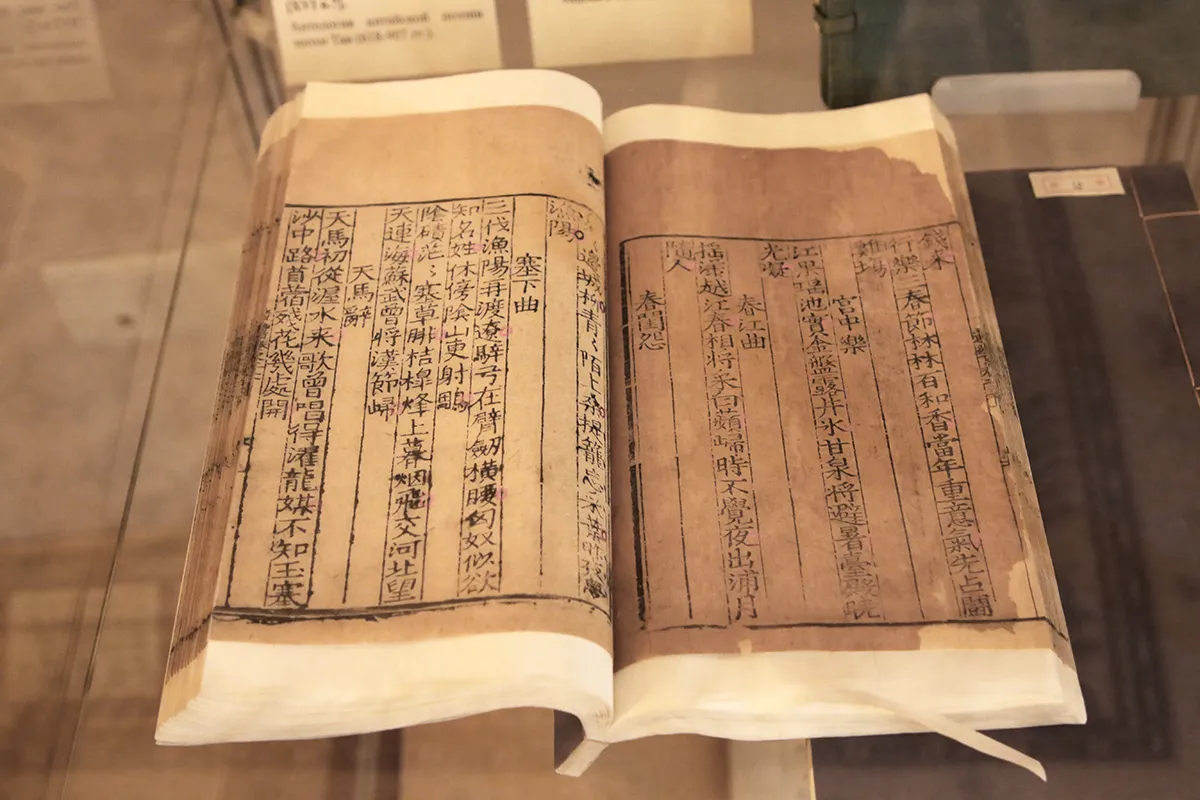 Антология китайской поэзии
эпохи Тан (618-907 гг.).
行樂三春節林林百和香當年重意氣先占鬬
雞場
宮中樂
江果瑤池實金盤露井氷甘泉將避暑臺殿曉
光凝
春江曲
搖漾越江春相將采白蘋歸時不覺夜出浦月
隨人
春閨怨
邊城柳青〻陌上桑提籠忘采葉昨夜夢
漁陽
塞下曲
三代漁陽再渡遼騂弓在臂劔橫腰匈奴似欲
知名姓休傍陰山更射鵰
陰磧茫〻塞草腓桔槔烽上暮烟飛交河北望
天連海蘇武曾將漢節歸
天馬辭
天馬初從渥水来歌曾唱得濯龍媒不知玉塞
沙中路苜蓿殘花幾處開